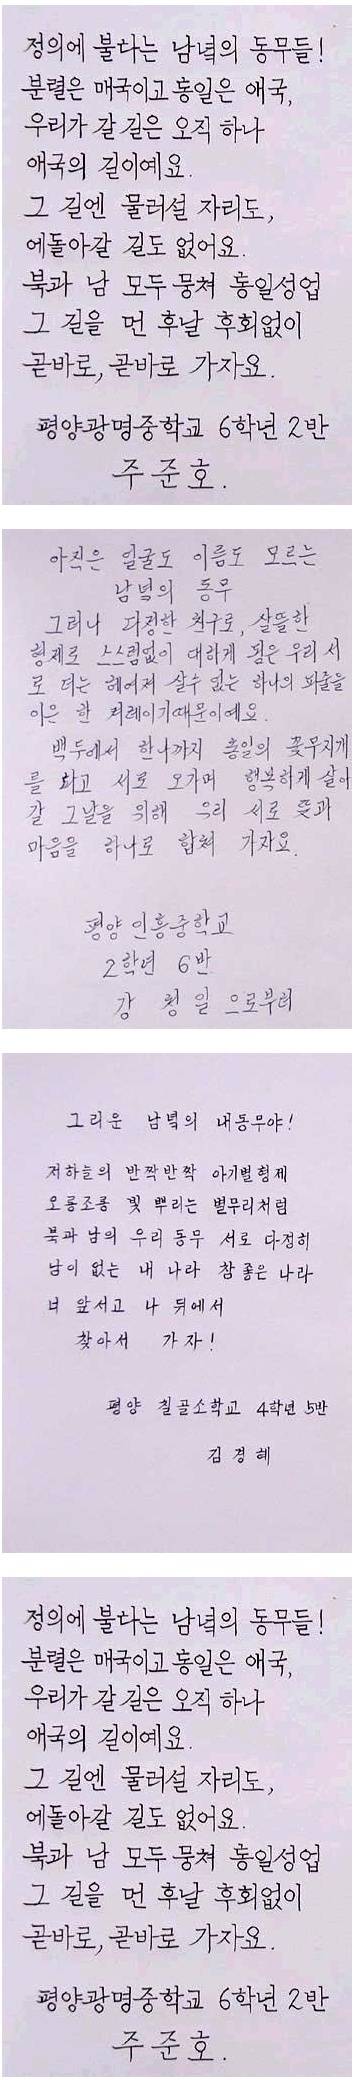 정의에 불타는 남녘의 동무들!
분렬은 매국이고 통일은 애국,
우리가 갈 길은 오직 하나
애국의 길이예요.
그 길엔 물러설 자리도,
에돌아갈 길도 없어요.
북과 남 모두 뭉쳐 통일성업
그 길을 먼 후날 후회없이
곧바로, 곧바로 가자요.
평양광명중학교 6학년 2반
주준호.
아직은 얼굴도 이름도 모르는
남녘의 동무
그러나 다정한 친구로, 살뜰한
형제로 스스럼없이 대하게 됨은 우리 서
로 더는 헤여져 살수 없는 하나의 피줄을
이은 한 겨레이기때문이예요.
백두에서 한나까지 통일의 꽃무지개
를 타고 서로 오가며 행복하게 살아
갈 그날을 위해 우리 서로 뜻과
마음을 하나로 합쳐 가자요.
평양인흥중학교
2학년 6반
강 청일 으로부터
그리운 남녘의 내동무야!
저하늘의 반짝반짝 아기별형제
오롱조롱 빛 뿌리는 별무리처럼
북과 남의 우리 동무 서로 다정히
남이 없는 내 나라 참 좋은 나라
너 앞서고 나 뒤에서
찾아서 가자!
평양 칠골소학교 4학년 5반
김경혜
정의에 불타는 남녘의 동무들!
분렬은 매국이고 통일은 애국,
우리가 갈 길은 오직 하나
애국의 길이예요.
그 길엔 물러설 자리도,
에돌아갈 길도 없어요.
북과 남 모두 뭉쳐 통일성업
그 길을 먼 후날 후회없이
곧바로, 곧바로 가자요.
평양광명중학교 6학년 2반
주준호.